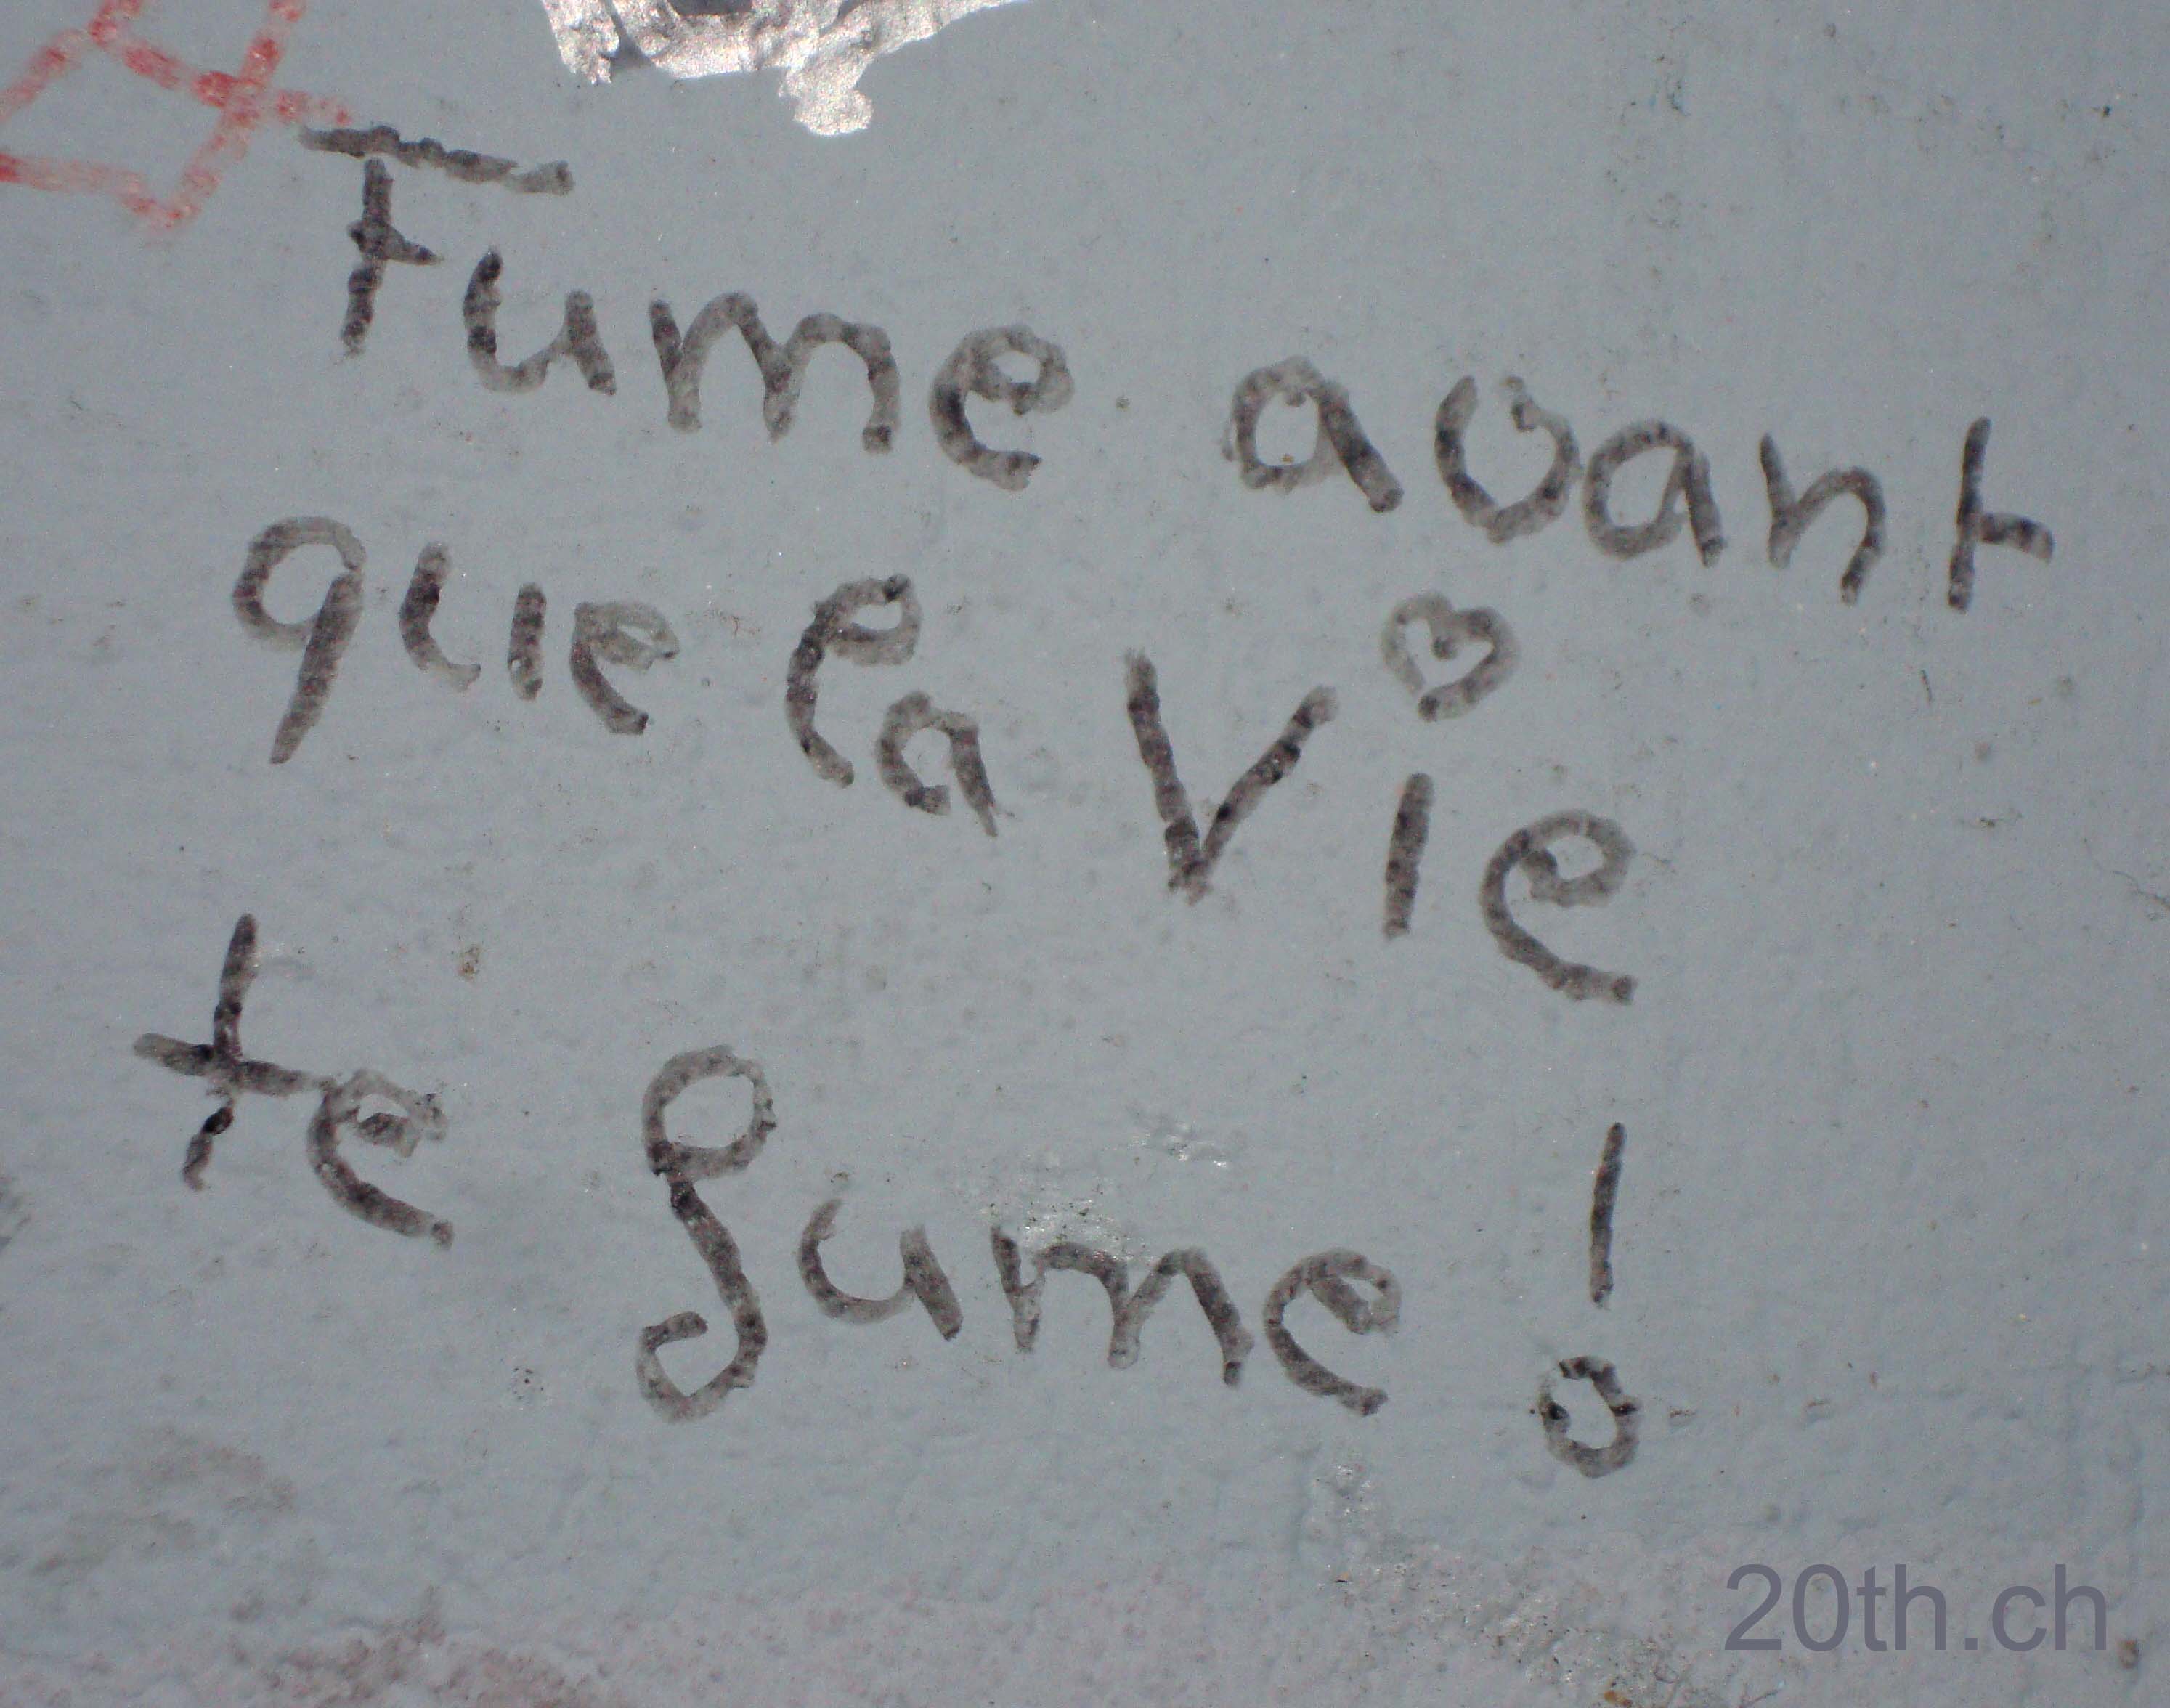 Fume avant
que la vie
te fume !
20th.ch